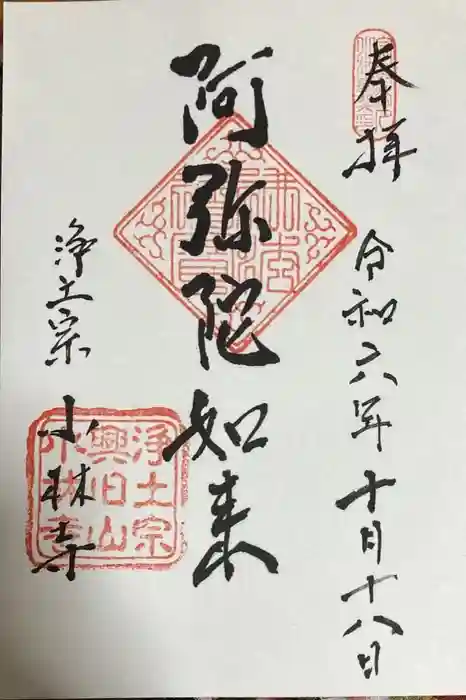 奉拝 令和六年十月十八日
阿弥陀如来
浄土宗 小林寺
浄土宗
興旧山
小林寺